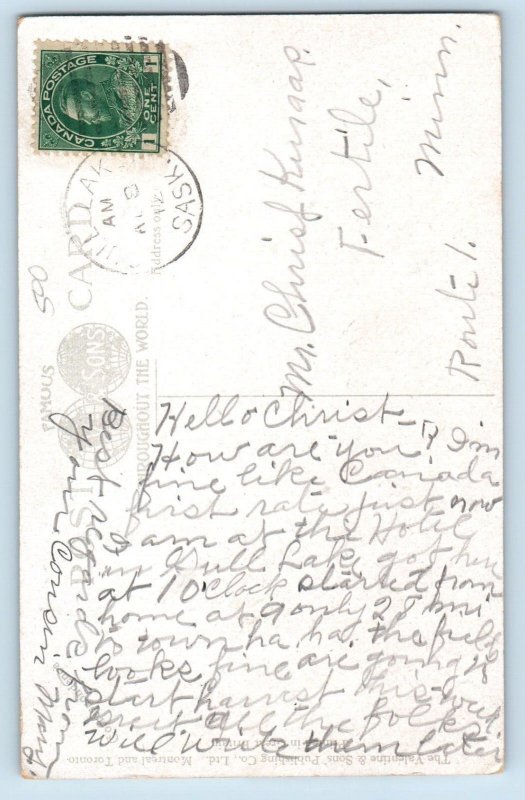 CANADA POSTAGE
1 ONE CENT 1
AM
SASK.
500
FAMOUS
THROUGHOUT THE WORLD.
POST CARD
SONS
Address only
Mr. Christ
Fertile,
Route 1. Minn.
Hello Christ—
How are you? I'm
fine like Canada
first rate just now
I am at the Hotel
in Gull Lake got here
at 10 Oclock started from
home at 9 only 28 mi
to town ha ha. the fields
looks fine are going to
start harvest this week
greet all the folks
will write them later
Best regards from
Your Cousin
The Valentine & Sons' Publishing Co., Ltd. Montreal and Toronto
Printed in Great Britain